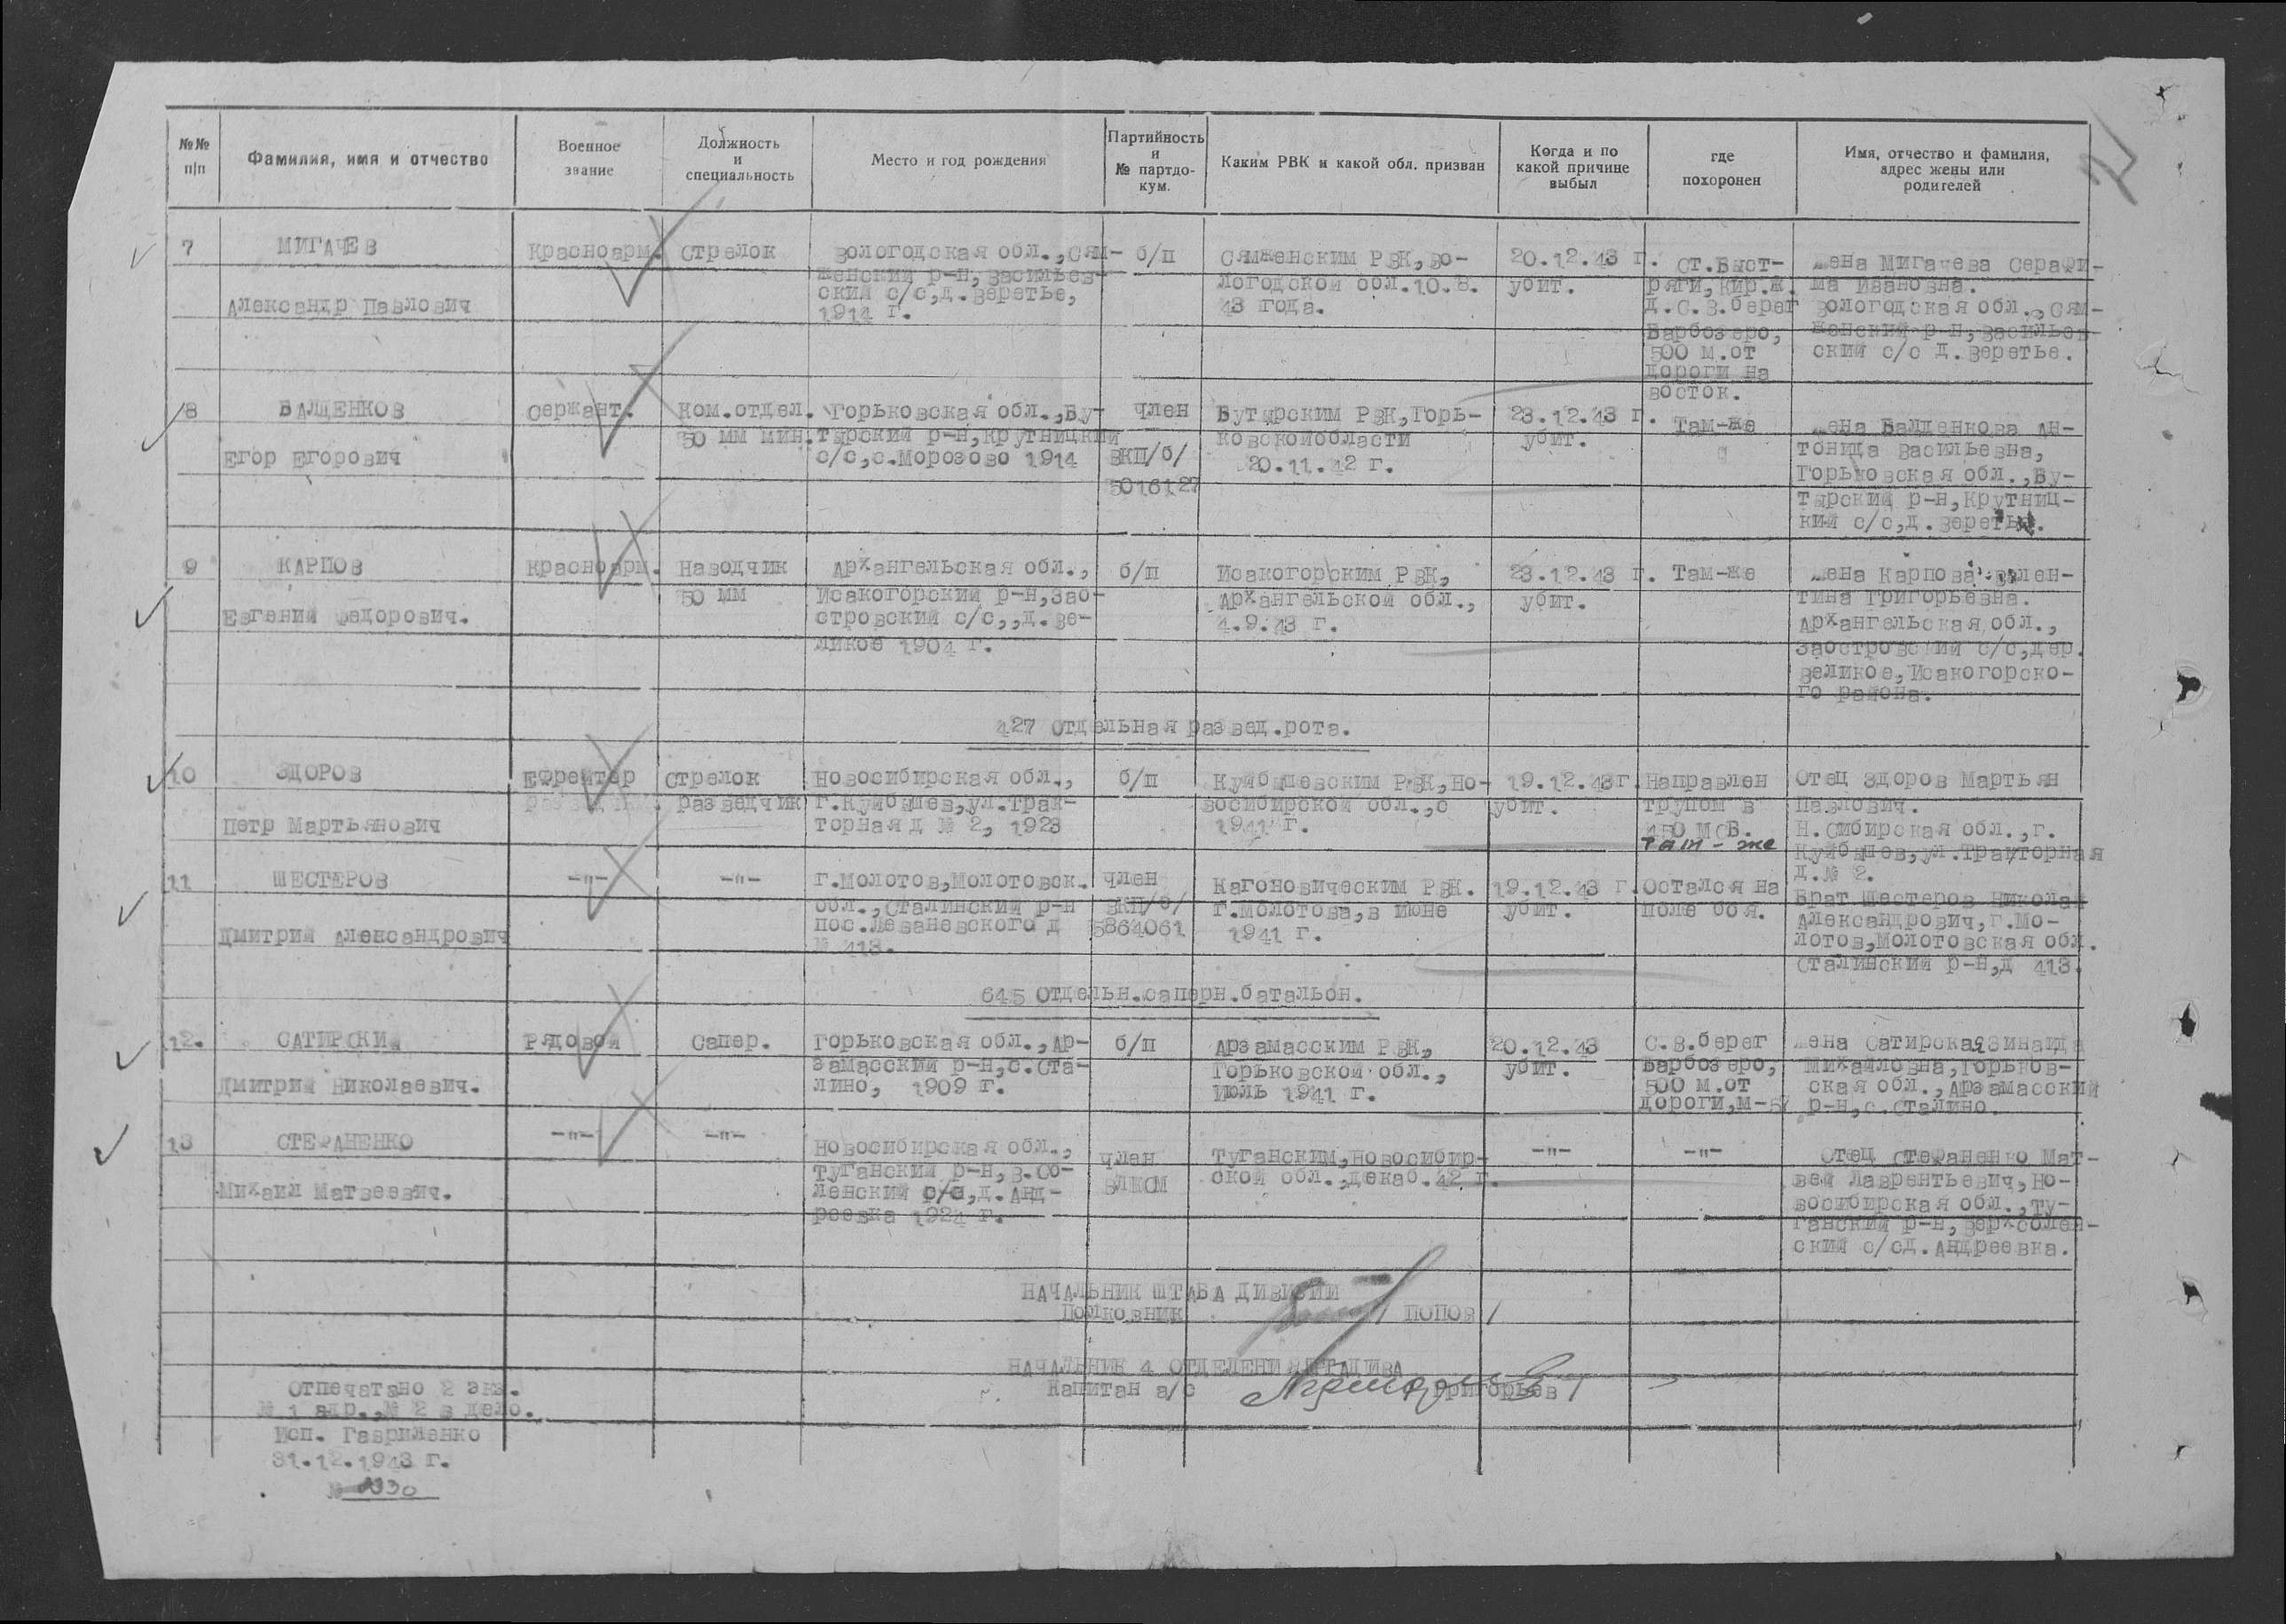 №№ п|п
Фамилия, имя и отчество
Военное звание
Должность и специальность
Место и год рождения
Партийность и № партдо-кум.
Каким РВК и какой обл. призван
Когда и по какой причине выбыл
где похоронен
Имя, отчество и фамилия, адрес жены или родителей
7
МИГАЧЕВ
Александр Павлович
Красноарм.
Стрелок
Вологодская обл.,Сям-
женский р-н,Васильев-
ский с/с,д.Веретье,
1914 г.
б/п
Сямженским РВК,Во-
логодской обл.10.8.
43 года.
20.12.43 г.
убит.
Ст.Быст-
ряги,Кир.ж.
д.С.В.берег
Варбозеро,
500 м.от
дороги на
восток.
Жена Мигачева Серафи-
ма Ивановна.
Вологодская обл.,Сям-
женский р-н,Васильев-
ский с/с д.Веретье.
8
БАЛДЕНКОВ
Егор Егорович
Сержант.
Ком.отдел.
50 мм мин.
Горьковская обл.,Бу-
тырский р-н,Крутницкий
с/с,с.Морозово 1914
член
ВКП/б/
5016127
Бутырским РВК,Горь-
ковскойобласти
20.11.42 г.
23.12.43 г.
убит.
Там-же
Жена Балденкова Ан-
тонида Васильевна,
Горьковская обл.,Бу-
тырский р-н,Крутниц-
кий с/с,д.Веретье.
9
КАРПОВ
Евгений Федорович.
Красноарм.
Наводчик
50 мм
Архангельская обл.,
Исакогорский р-н,Зао-
стровский с/с,,д.Ве-
ликое 1904 г.
б/п
Исакогорским РВК,
Архангельской обл.,
4.9.43 г.
23.12.43 г.
убит.
Там-же
Жена Карпова Вален-
тина Григорьевна.
Архангельская,обл.,
Заостровский с/с,дер.
Великое,Исакогорско-
го района.
427 отдельная развед.рота.
10
ЗДОРОВ
Петр Мартьянович
Ефрейтор
Стрелок
разведчик
Новосибирская обл.,
г.Куйбышев,ул.Трак-
торная д № 2, 1923
б/п
Куйбышевским РВК,Но-
восибирской обл.,с
1941 г.
19.12.43г.
убит.
Направлен
трупом в
450 МСБ.
там - же
Отец Здоров Мартьян
Павлович.
Н.Сибирская обл.,г.
Куйбышев,ул.Тракторная
д.№ 2.
11
ШЕСТЕРОВ
Дмитрий Александрович
-"-
-"-
г.Молотов,Молотовск.
обл.,Сталинский р-н
пос.Леваневского д
№ 413.
член
ВКП/б/
5864061
Кагоновическим РВК.
г.Молотова,в июне
1941 г.
19.12.43 г.
убит.
Остался на
поле боя.
Брат Шестеров Николай
Александрович,г.Мо-
лотов,Молотовская обл.
Сталинский р-н,д 413.
645 отдельн.саперн.батальон.
12.
САТИРСКИЙ
Дмитрий Николаевич.
Рядовой
Сапер.
Горьковская обл.,Ар-
замасский р-н,с.Ста-
лино, 1909 г.
б/п
Арзамасским РВК,
Горьковской обл.,
Июль 1941 г.
20.12.43
убит.
С.В.берег
Варбозеро,
500 м.от
дороги,м-б
Жена Сатирская Зинаида
Михайловна,Горьков-
ская обл.,Арзамасский
р-н,с.Сталино.
13
СТЕФАНЕНКО
Михаил Матвеевич.
-"-
-"-
Новосибирская обл.,
Туганский р-н,В.Со-
ленский с/с,д.Анд-
реевка 1924 г.
член
ВЛКСМ
Туганским,Новосибир-
ской обл.,декаб.42 г.
-"-
-"-
Отец Стефаненко Мат-
вей Лаврентьевич,Но-
восибирская обл.,Ту-
ганский р-н,Верхсолен-
ский с/сд.Андреевка.
НАЧАЛЬНИК ШТАБА ДИВИЗИИ
Полковник / ПОПОВ /
НАЧАЛЬНИК 4 ОТДЕЛЕНИЯ ШТАДИВА
Капитан а/с / Григорьев /
Отпечатано 2 экз.
№ 1 адр.,№ 2 в дело.
Исп. Гавриленко
31.12.1943 г.